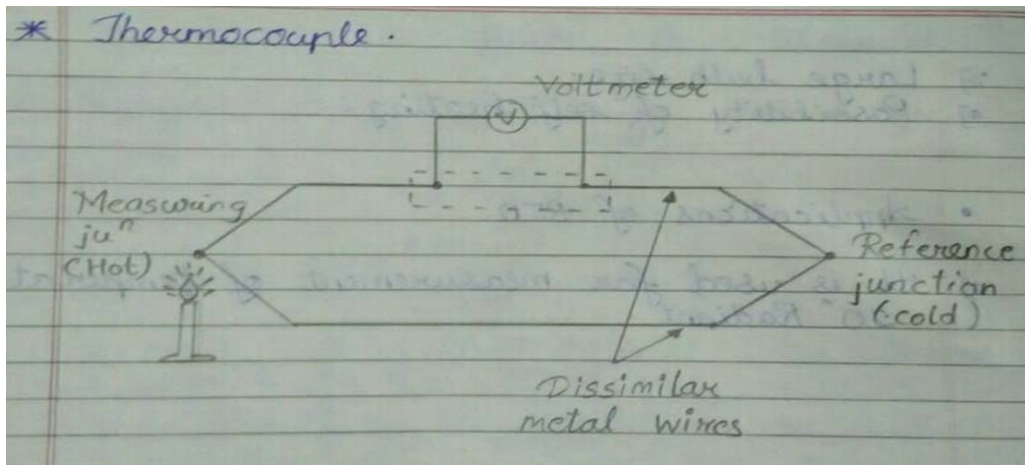 * Thermocouple.
Voltmeter
V
Measuring
juⁿ
(Hot)
Reference
junction
(cold)
Dissimilar
metal wires